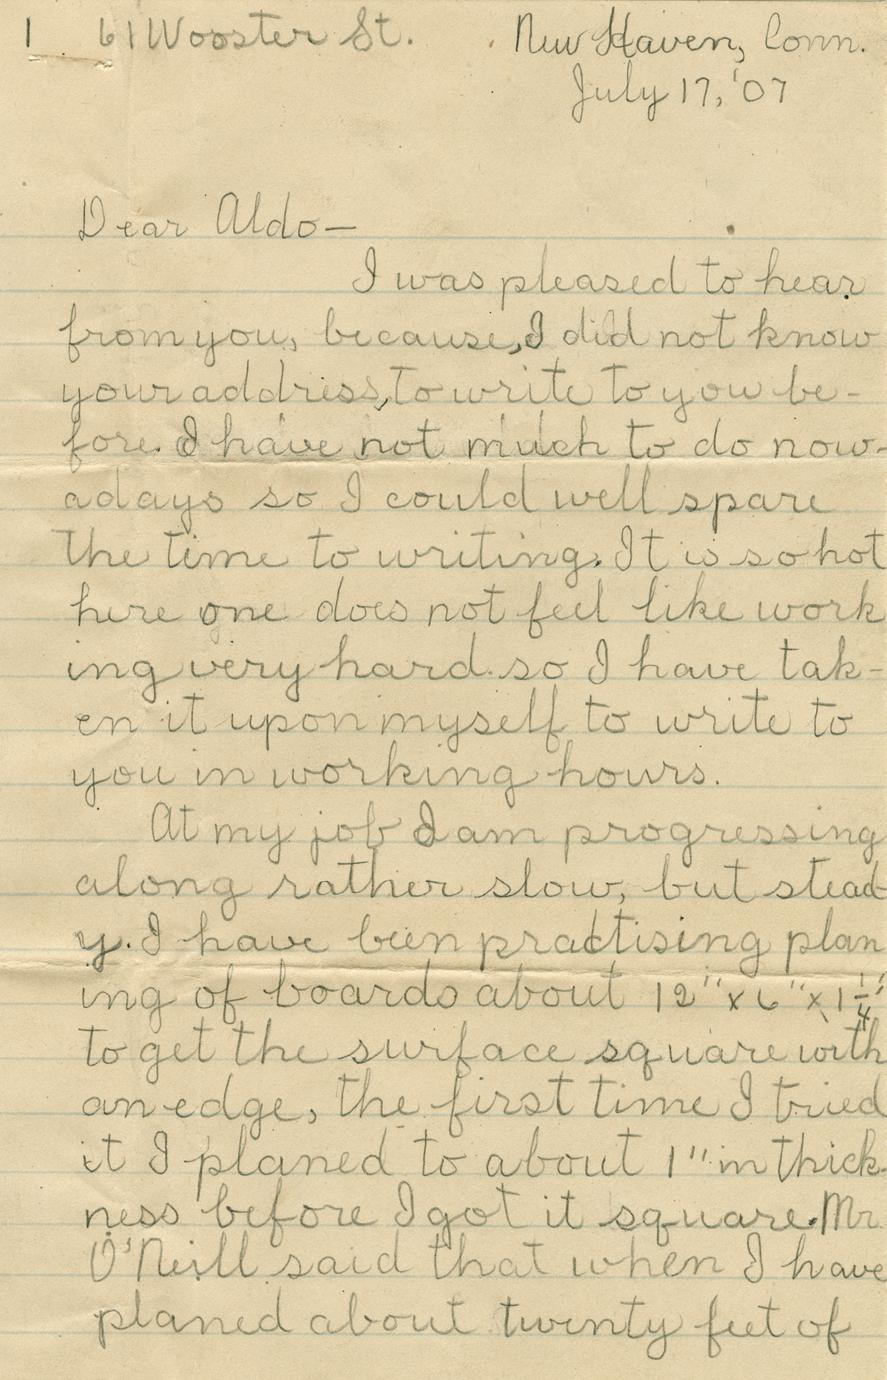 1 61 Wooster St. New Haven, Conn.
July 17, '07
Dear Aldo—
I was pleased to hear
from you, because, I did not know
your address, to write to you be-
fore. I have not much to do now-
adays so I could well spare
the time to writing. It is so hot
here one does not feel like work
ing very hard. so I have tak-
en it upon myself to write to
you in working hours.
At my job I am progressing
along rather slow, but stead
y. I have been practising plan
ing of boards about 12" x 6" x 1 1/4"
to get the surface square with
an edge, the first time I tried
it I planed to about 1" in thick-
ness before I got it square. Mr
O'Neill said that when I have
planed about twenty feet of